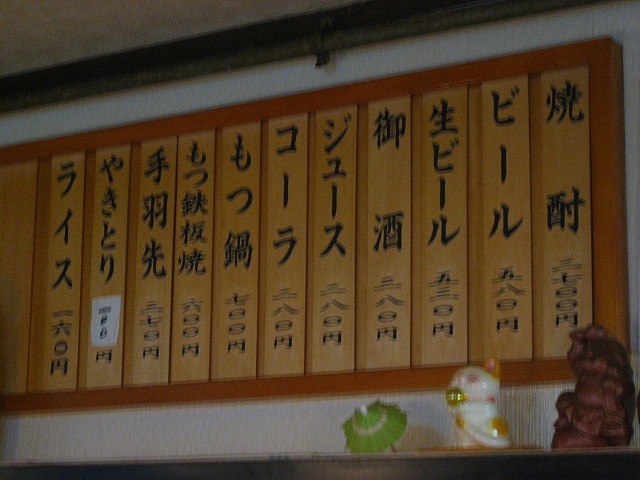 焼酎 二七〇〇円
ビール 五八〇円
生ビール 五三〇円
御酒 三八〇円
ジュース 二八〇円
コーラ 二八〇円
もつ鍋 七〇〇円
もつ鉄板焼 六〇〇円
手羽先 三七〇円
やきとり 円
ライス 一六〇円